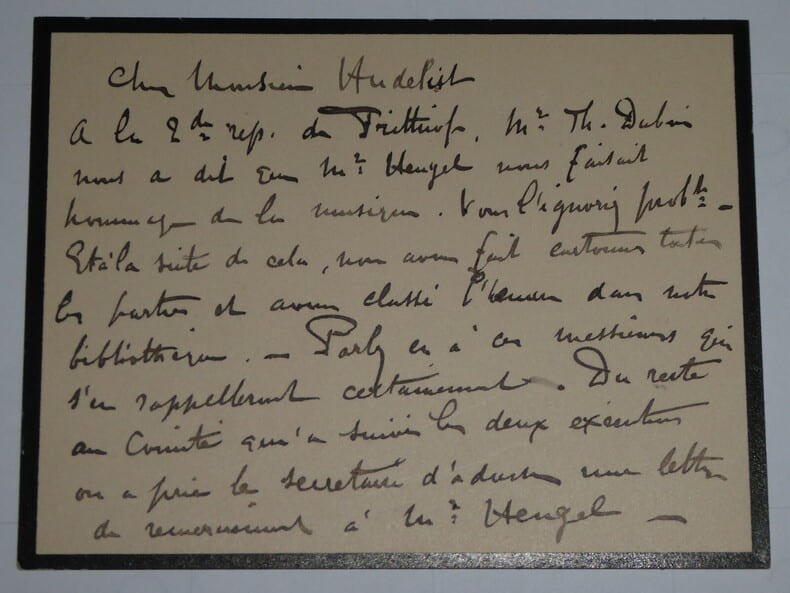 Cher Monsieur Hudelist
A la 2de rep. de Frithiof, Mr Th. Dubois
nous a dit que Mr Heugel nous faisait
hommage de la musique. Vous l'ignoriez probt —
Et à la suite de cela, nous avons fait cartonner toutes
les parties et avons classé l'œuvre dans notre
bibliothèque. — Parlez en à ces messieurs qui
s'en rappelleront certainement. Du reste
au Comité qui a suivi les deux exécutions
on a prié le secrétaire d'adresser une lettre
de remerciement à Mr Heugel —